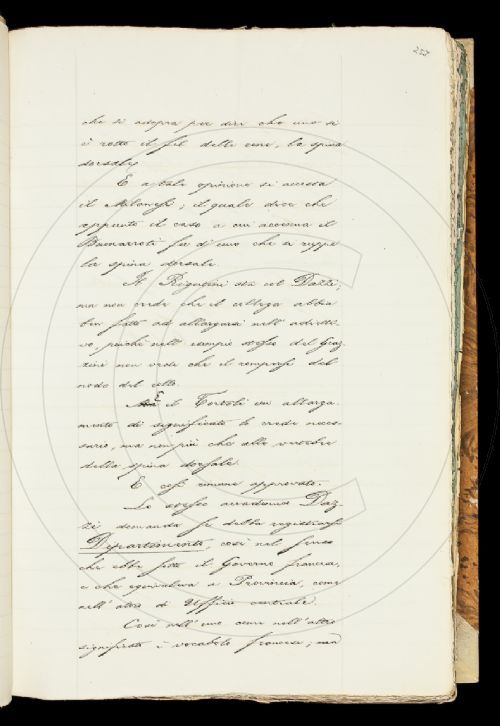 227
che si adopra per dire che uno si
è rotto il fil delle reni, la spina
dorsale.
E a tale opinione si accosta
il Milanesi; il quale dice che
appunto il caso a cui accenna il
Buonarroti fu d'uno che si ruppe
la spina dorsale.
Il Rigutini sta col Dazzi;
ma non crede che il collega abbia
ben fatto ad allargarsi nell'
vo, poichè nell'esempio stesso del Graz-
zini non vede che il rompersi del
nodo del collo.
E il Tortoli un allarga-
mento di significato lo crede neces-
sario, ma non più che alle vertebre
della spina dorsale.
E così rimane approvato.
Lo stesso accademico Daz-
zi domanda se debba registrarsi
Dipartimento, così nel senso
che ebbe sotto il Governo francese,
e che equivaleva a Provincia, come
nell'altro di Uffizio centrale.
Così nell'uno come nell'altro
significato è vocabolo francese; ma